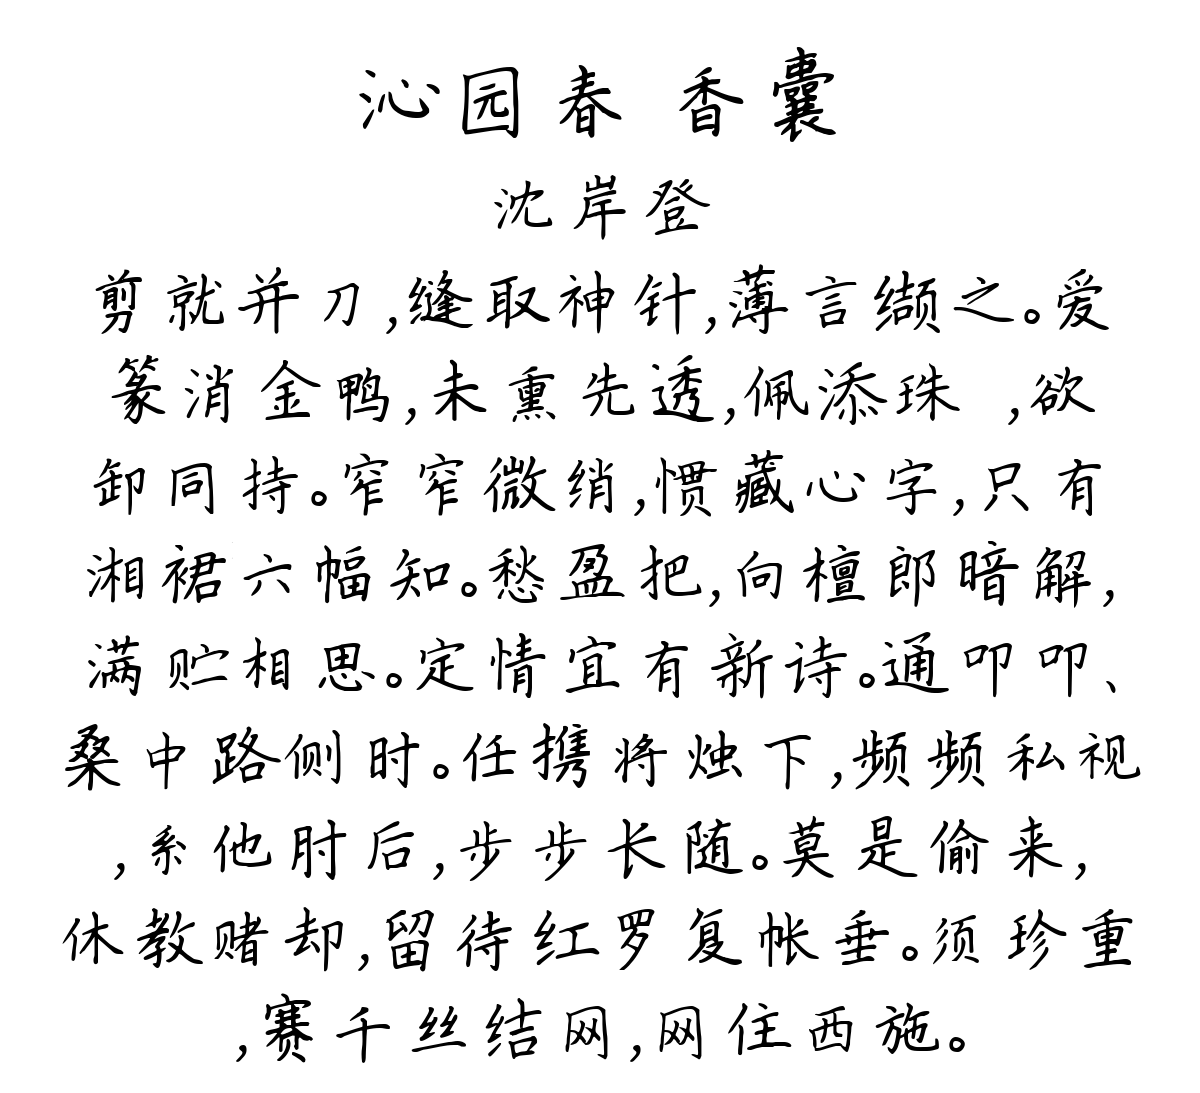 沁园春 香囊
沈岸登
剪就并刀,缝取神针,薄言缬之。爱
篆消金鸭,未熏先透,佩添珠 ,欲
卸同持。窄窄微绡,惯藏心字,只有
湘裙六幅知。愁盈把,向檀郎暗解,
满贮相思。定情宜有新诗。通叩叩、
桑中路侧时。任携将烛下,频频私视
,系他肘后,步步长随。莫是偷来,
休教赌却,留待红罗复帐垂。须珍重
,赛千丝结网,网住西施。